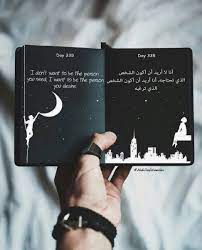 Day 339
I don't want to be the person
you need, I want to be the person
you desire.
Day 338
أنا لا أريد أن أكون الشخص
الذي تحتاجه، أنا أريد أن أكون الشخص
الذي ترغبه